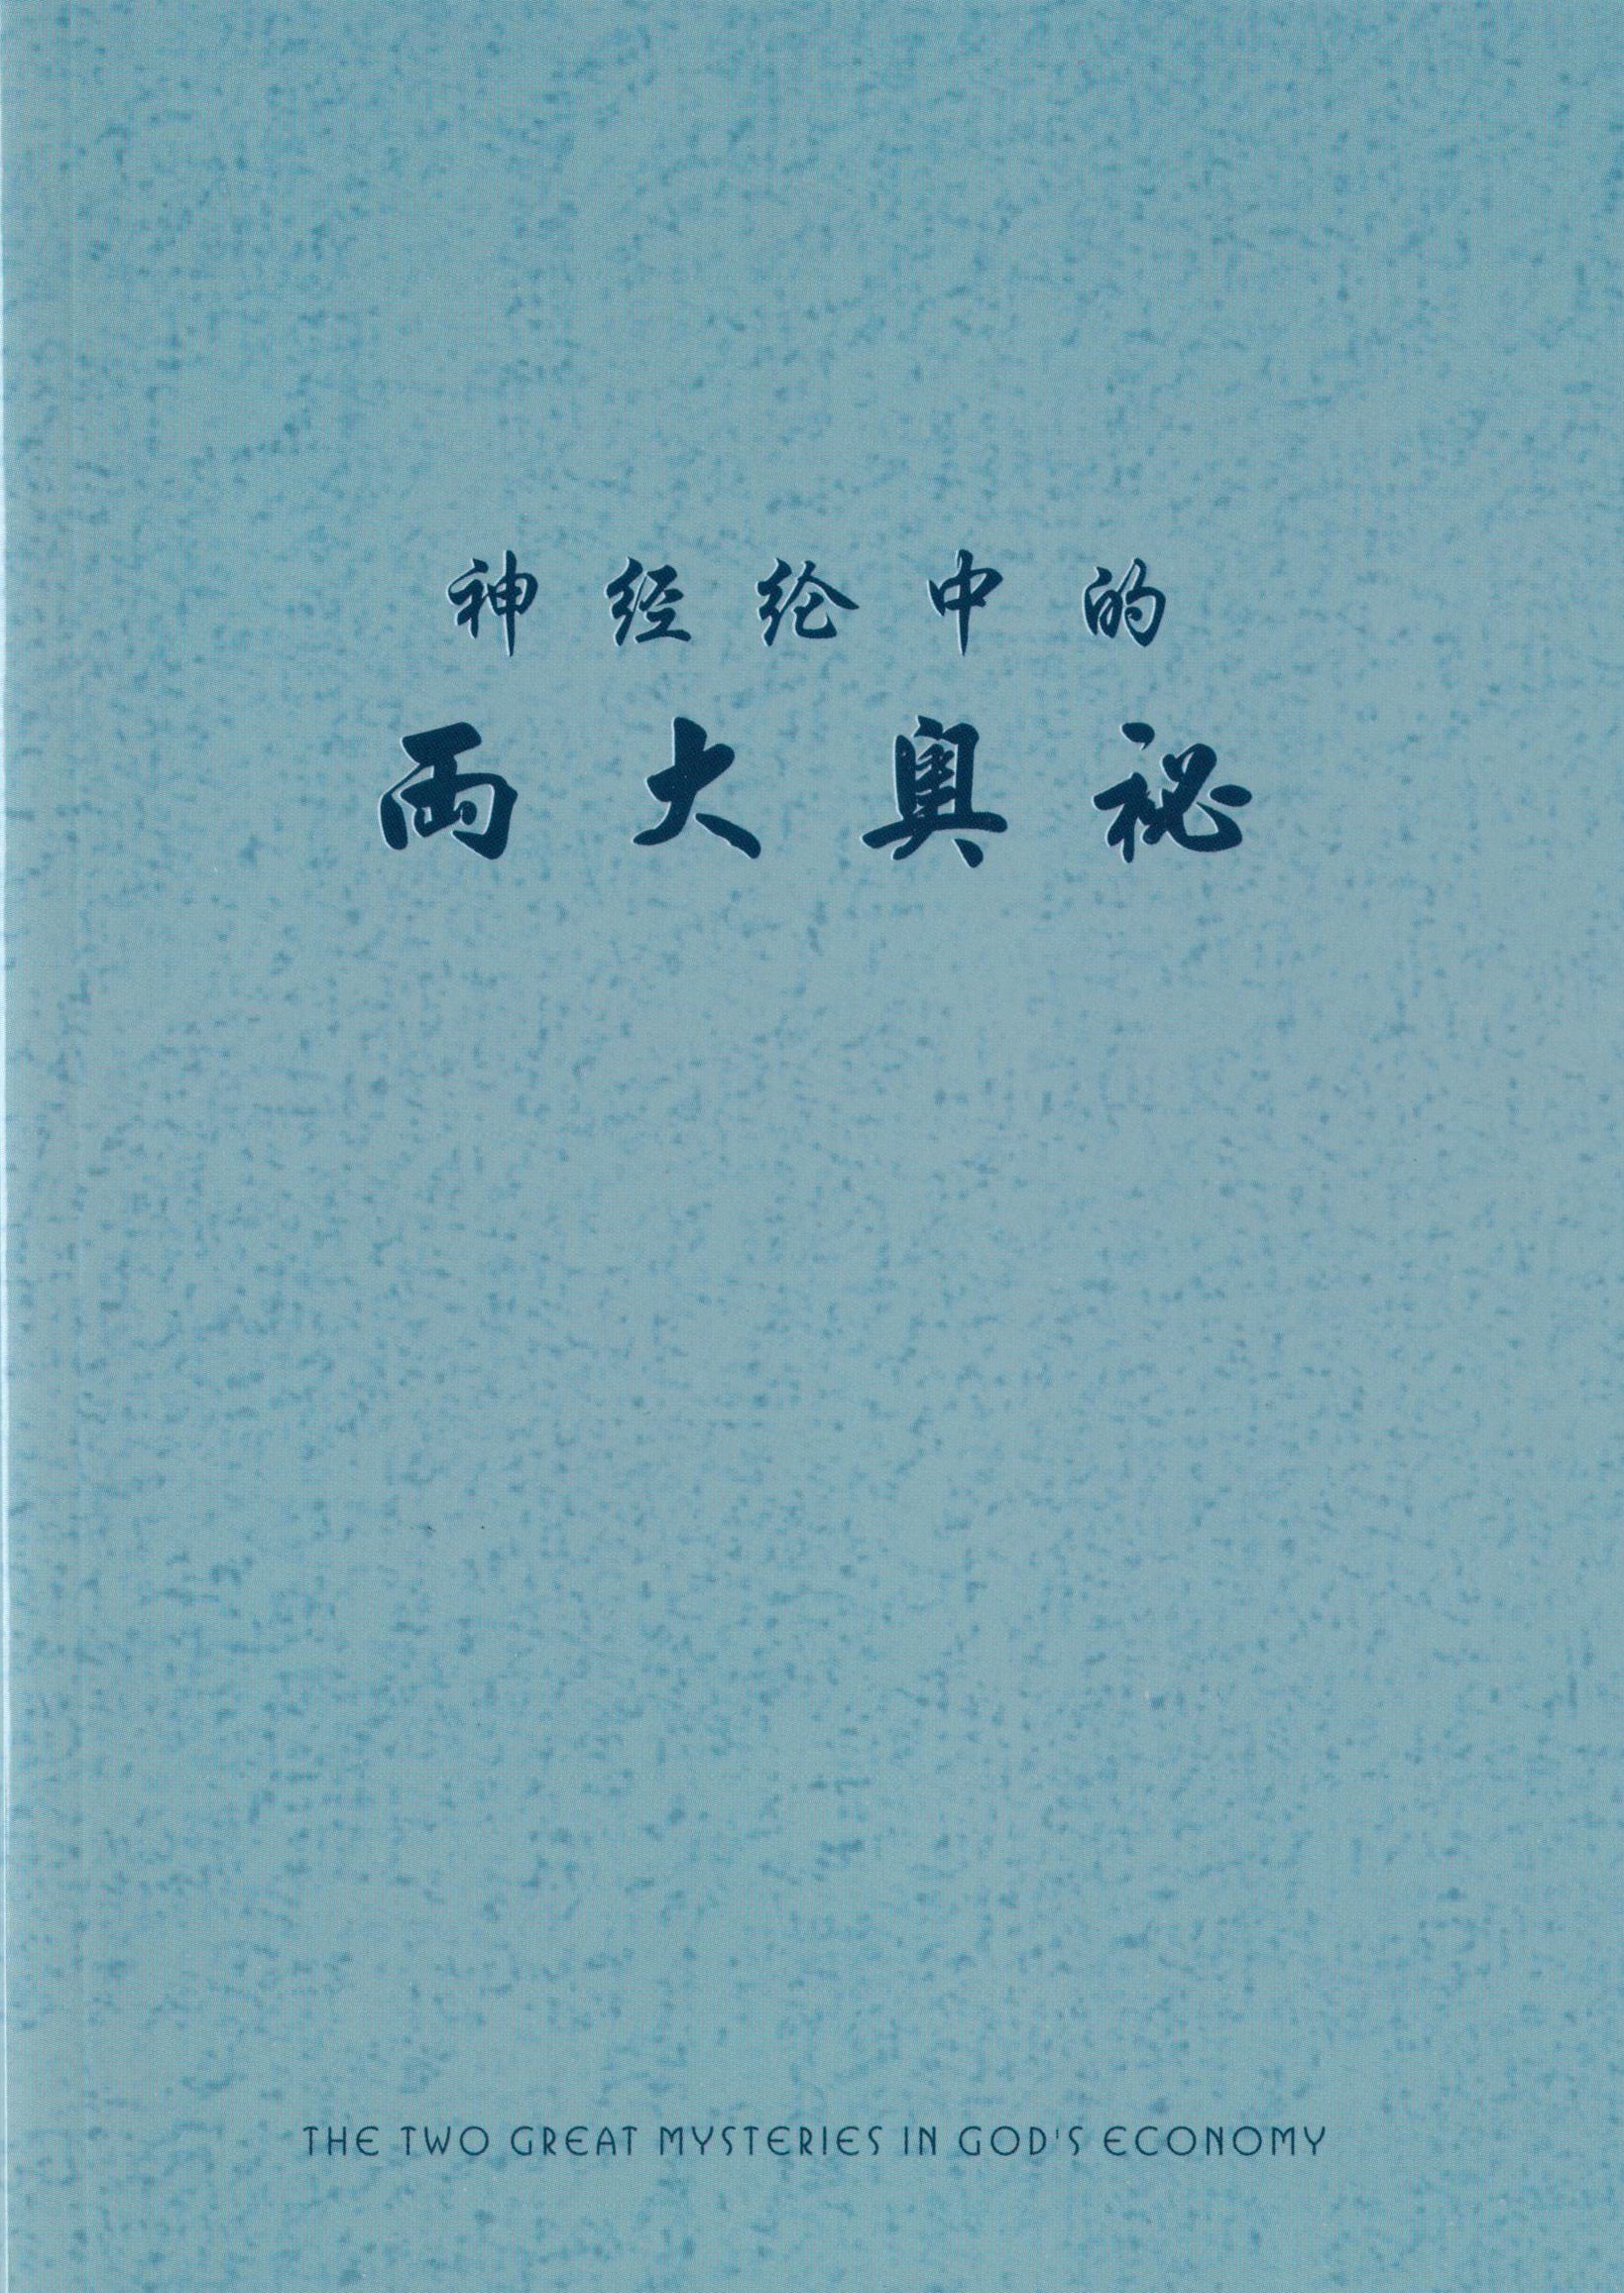 神经纶中的
两大奥祕
THE TWO GREAT MYSTERIES IN GOD'S ECONOMY